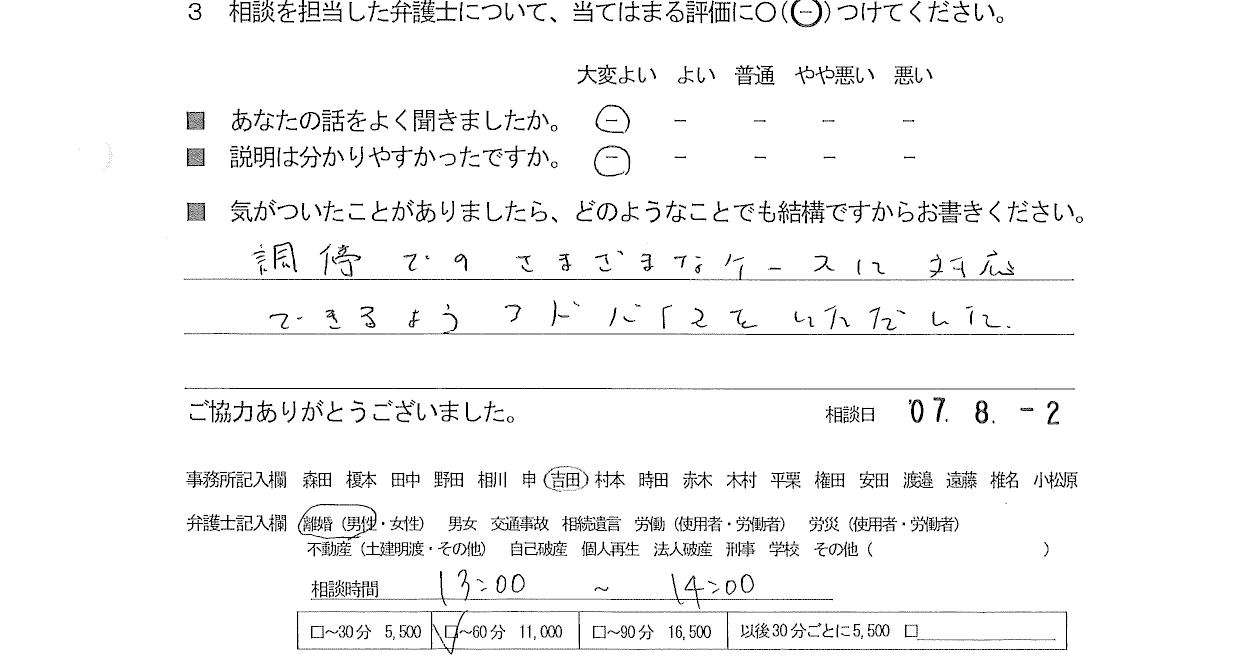 3 相談を担当した弁護士について、当てはまる評価に○(㊀)つけてください。
大変よい よい 普通 やや悪い 悪い
■ あなたの話をよく聞きましたか。 － － － － －
■ 説明は分かりやすかったですか。 － － － － －
■ 気がついたことがありましたら、どのようなことでも結構ですからお書きください。
調停でのさまざまなケースに対応
できるようアドバイスをいただいた.
ご協力ありがとうございました。 相談日 '07. 8. -2
事務所記入欄 森田 榎本 田中 野田 相川 申 吉田 村本 時田 赤木 木村 平栗 権田 安田 渡邉 遠藤 椎名 小松原
弁護士記入欄 離婚（男性・女性） 男女 交通事故 相続遺言 労働（使用者・労働者） 労災（使用者・労働者）
不動産（土建明渡・その他） 自己破産 個人再生 法人破産 刑事 学校 その他（ ）
相談時間 13:00 ～ 14:00
□～30分 5,500 □～60分 11,000 □～90分 16,500 以後30分ごとに5,500 □